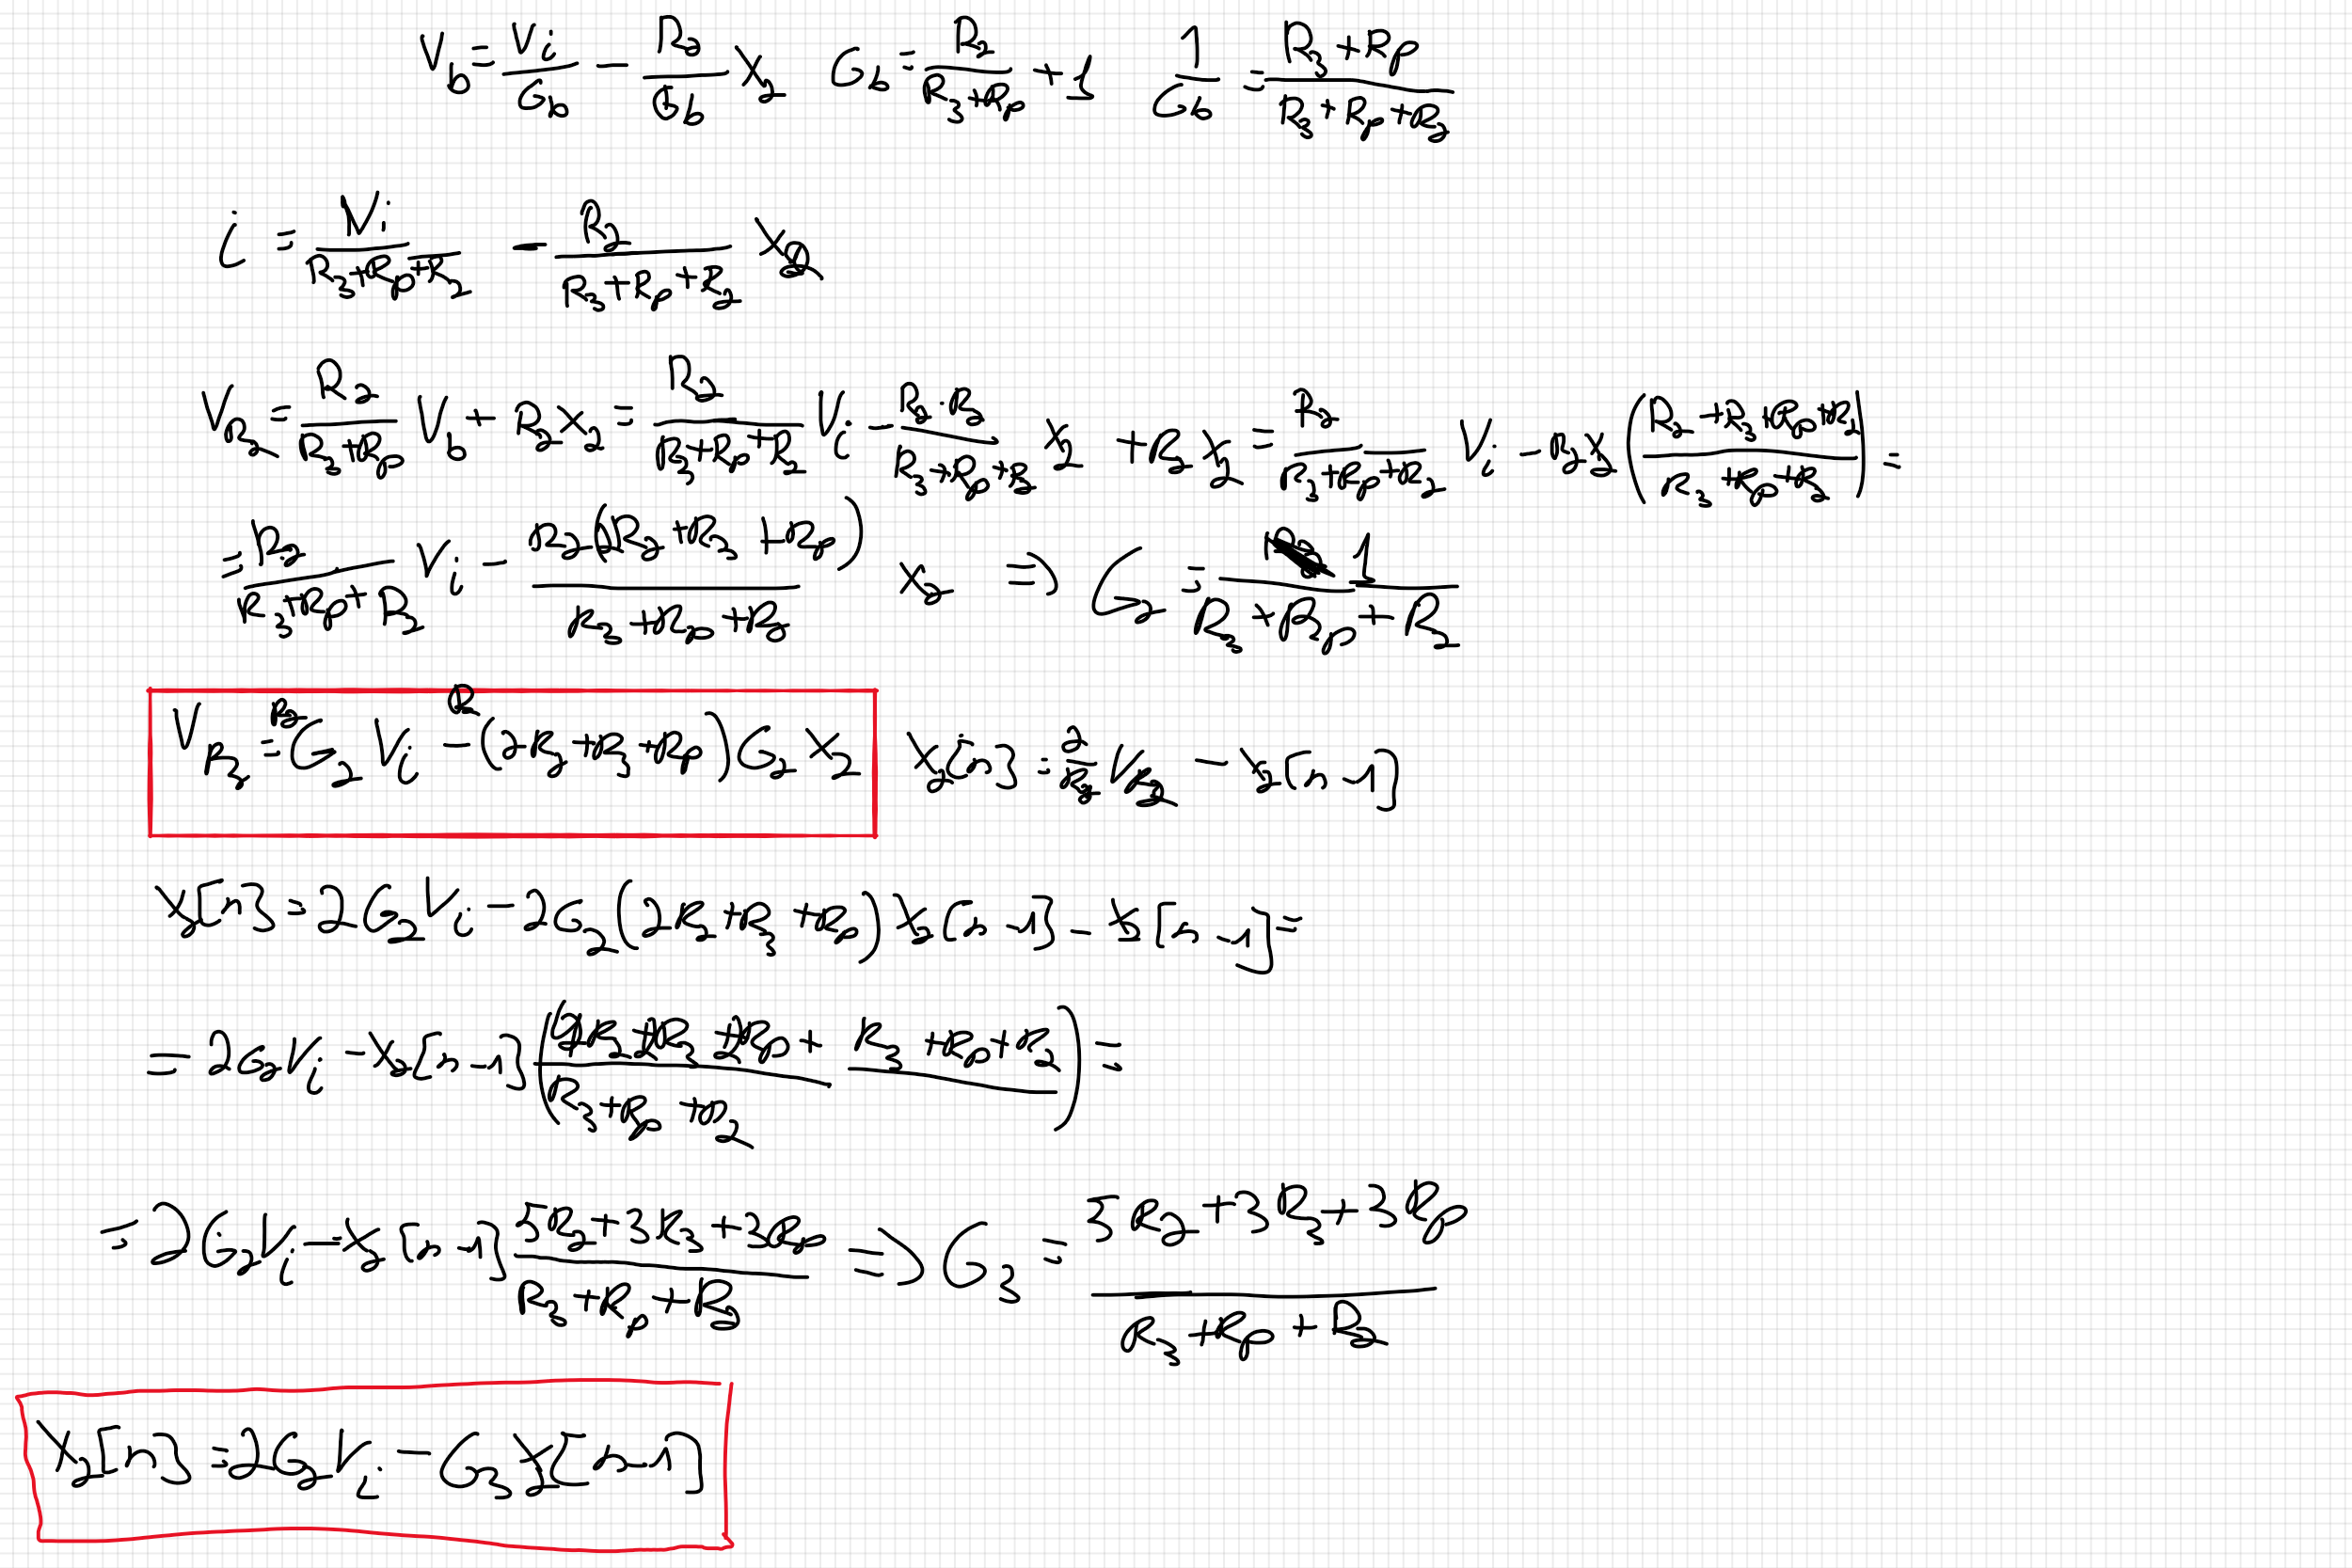 V_b = V_i/G_b - R_2/G_b x_2   G_b = R_2/(R_3+R_p) + 1   1/G_b = (R_3+R_p)/(R_3+R_p+R_2)
i = V_i/(R_3+R_p+R_2) - R_2/(R_3+R_p+R_2) x_2
V_{R_2} = R_2/(R_3+R_p) V_b + R_2 x_2 = R_2/(R_3+R_p+R_2) V_i - (R_2·R_2)/(R_3+R_p+R_2) x_2 + R_2 x_2 = R_2/(R_3+R_p+R_2) V_i - R_2 x_2 ((R_2+R_3+R_p+R_2)/(R_3+R_p+R_2)) =
= R_2/(R_3+R_p+R_2) V_i - R_2(2R_2+R_3+R_p)/(R_3+R_p+R_2) x_2 => G_2 = 1/(R_3+R_p+R_2)
V_{R_2} = R_2 G_2 V_i - R_2(2R_2+R_3+R_p)G_2 x_2   x_2[n] = 2/R_2 V_{R_2} - x_2[n-1]
x_2[n] = 2G_2 V_i - 2G_2(2R_2+R_3+R_p) x_2[n-1] - x_2[n-1] =
= 2G_2 V_i - x_2[n-1]((4R_2+2R_3+2R_p+R_3+R_p+R_2)/(R_3+R_p+R_2)) =
= 2G_2 V_i - x_2[n-1] (5R_2+3R_3+3R_p)/(R_3+R_p+R_2) => G_3 = (5R_2+3R_3+3R_p)/(R_3+R_p+R_2)
x_2[n] = 2G_2 V_i - G_3 x_2[n-1]